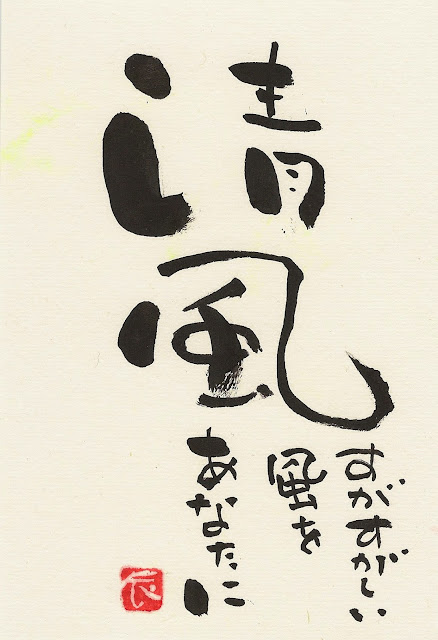 清風
すがすがしい
風を
あなたに
辰